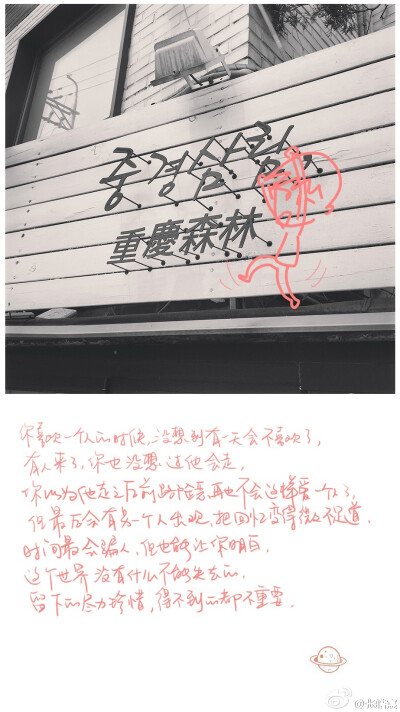 중경삼림
重慶森林
你喜欢一个人的时候,没想到有一天会不喜欢了,
有人来了,你也没想过他会走,
你以为他走之后前路 再也不会这样爱一个人了,
但最后会有另一个人出现,把回忆变得微不足道.
时间最会骗人,但也能让你明白,
这个世界没有什么不能失去的,
留下的尽力珍惜,得不到的都不重要.